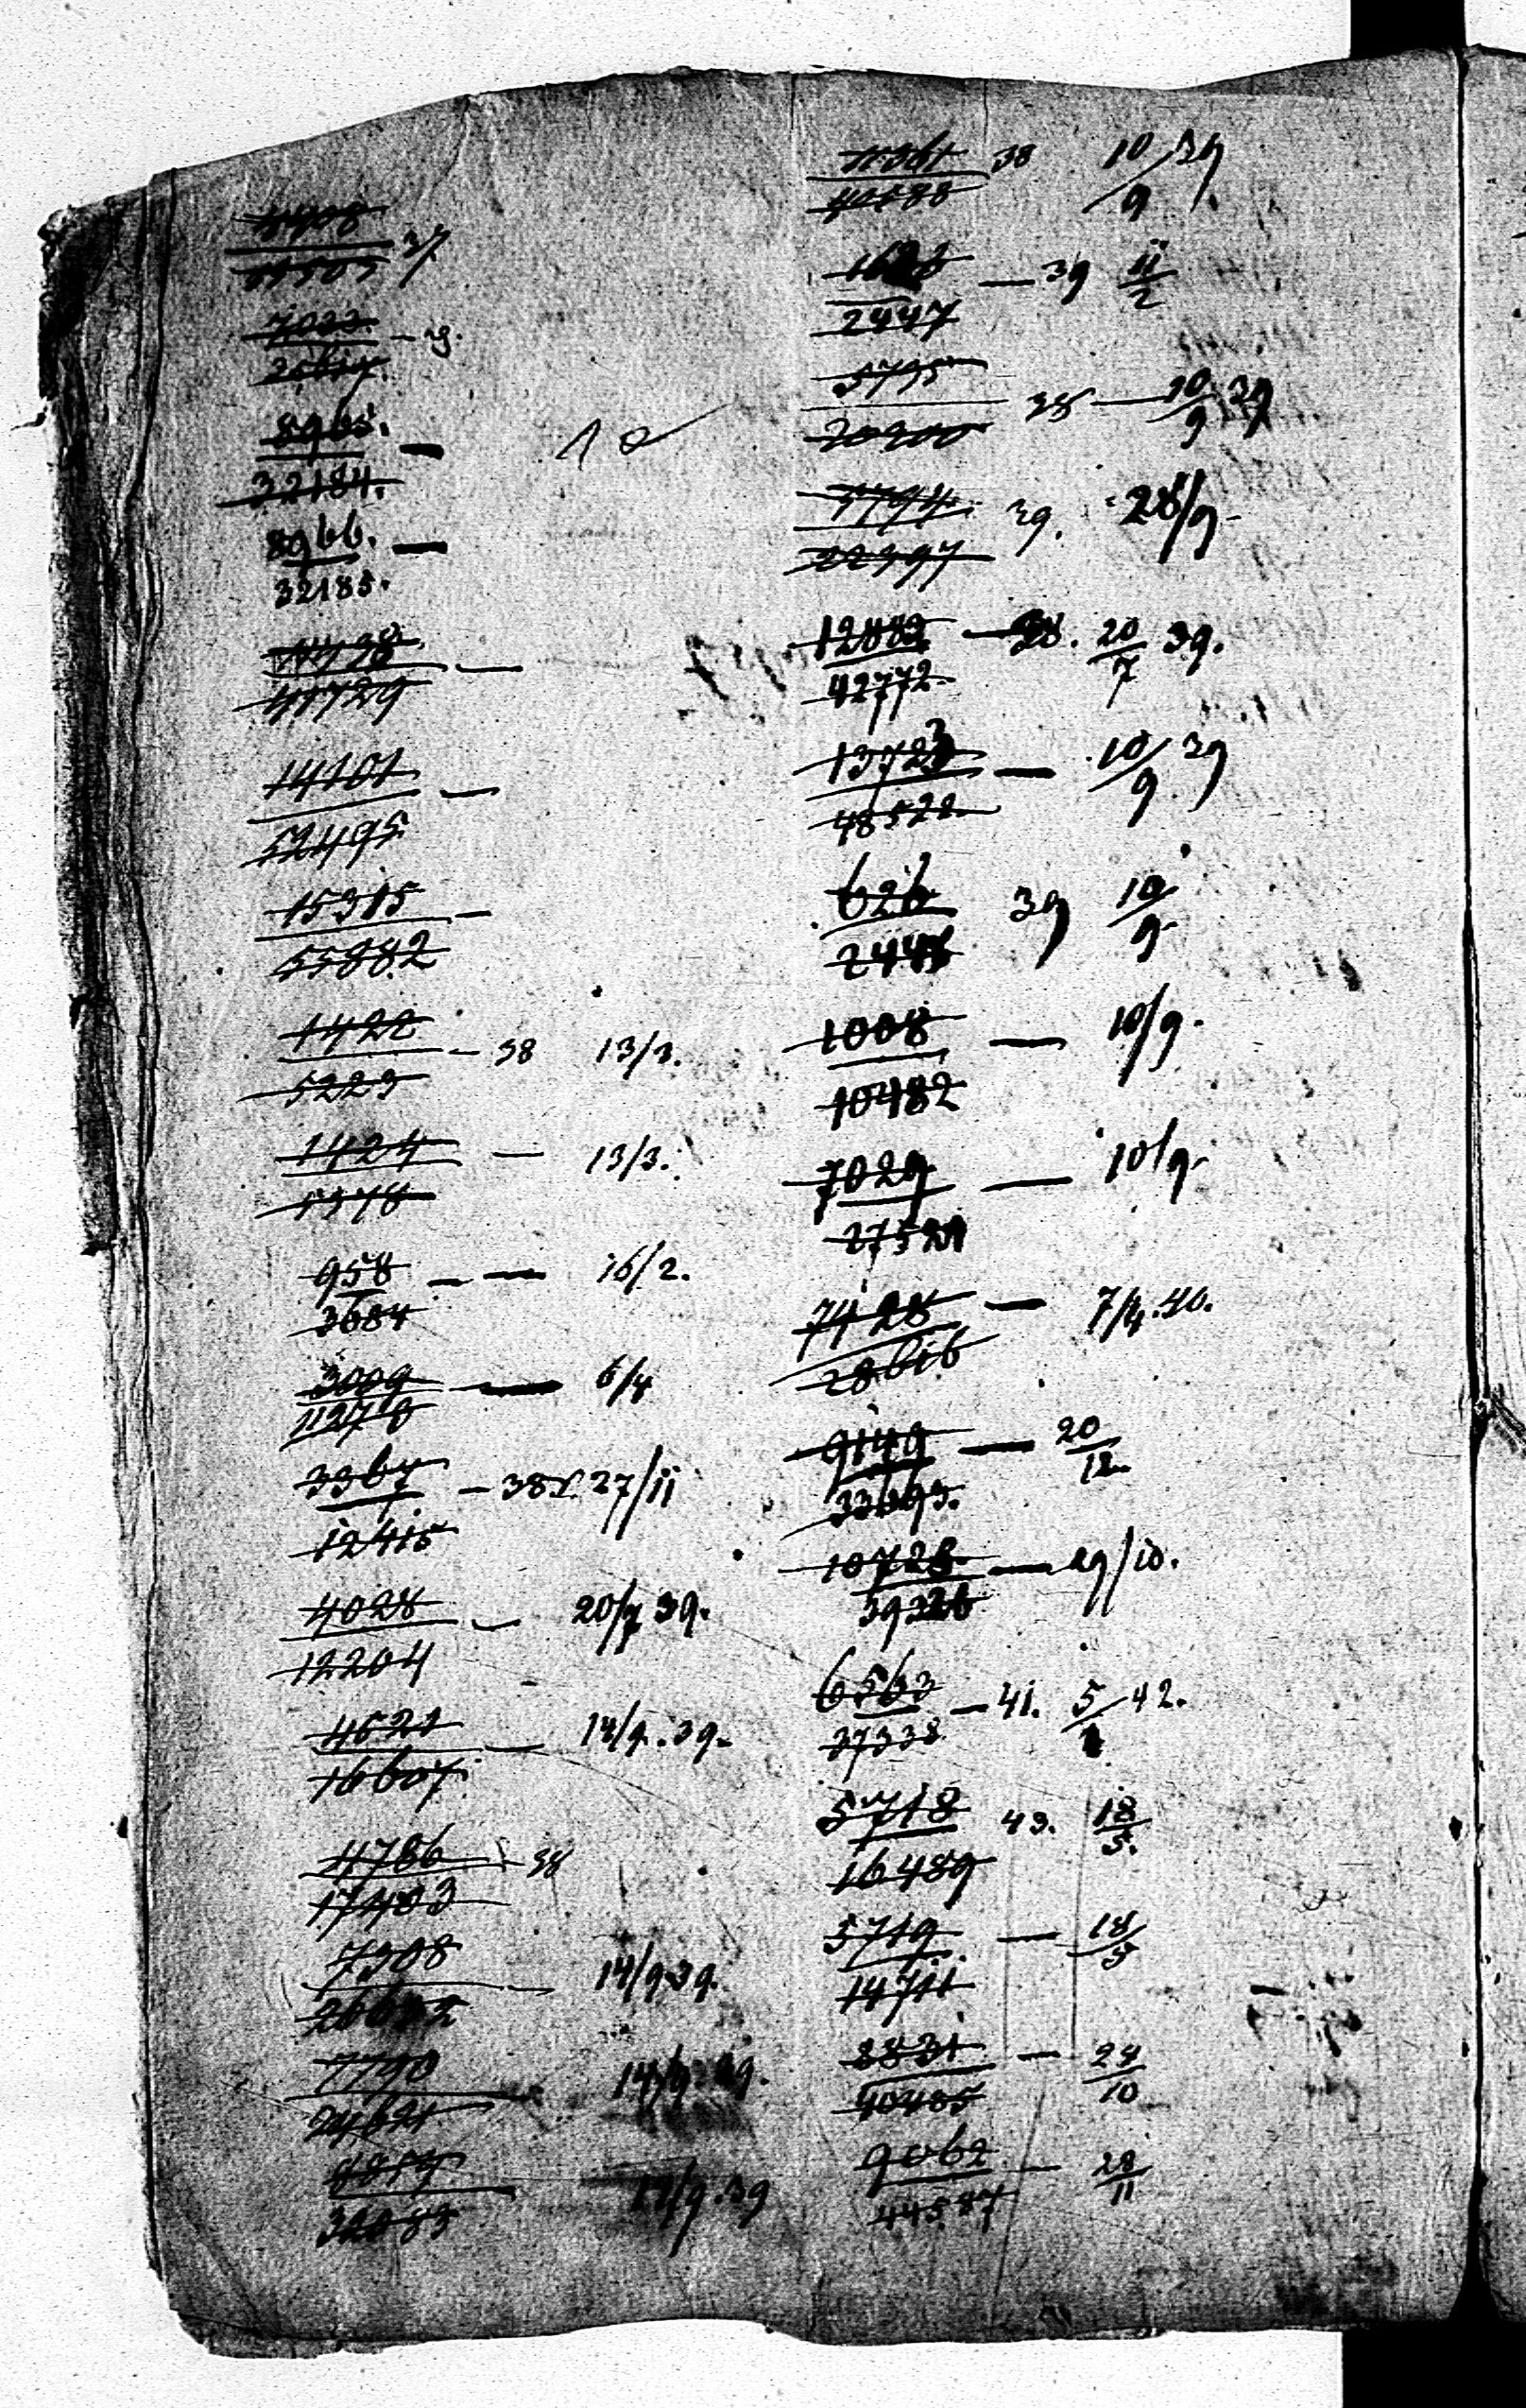 37
7033
8965. —
32184.
8966. —
32185.
—
41729
14101 —
52495
15315 —
55882
1422 — 38 13/3.
5223
1424 — 13/3.
1378
958 — — 16/2.
3684
3009 — 6/4
11279
3367 — 38 27/11
12415
4028 — 20/7 39.
12204
4621 — 14/9.39.
16607
4786 — 38
17403
7308 — 14/9 39.
7790 — 14/9.39.
24621
14/9.39
32083
10
11361 38 10/9 39
40188
— 39 11/2
2447
5795 38 — 10/9 39
20200
39. 28/9
22397
12882 — 38. 20/7 39.
42772
13723 — 10/9 39
48522
626 39 10/9
2448
1008 — 10/9.
10482
7029 — 10/9.
7428 — 7/4.40.
28616
9149 — 20/12
33693.
10728 — 29/10.
39326
6563 — 41. 5/1 42.
37338
5718 43. 18/5.
16489
5719 — 18/5
14711
8831 — 24/10
40485
9062 — 28/11
44587